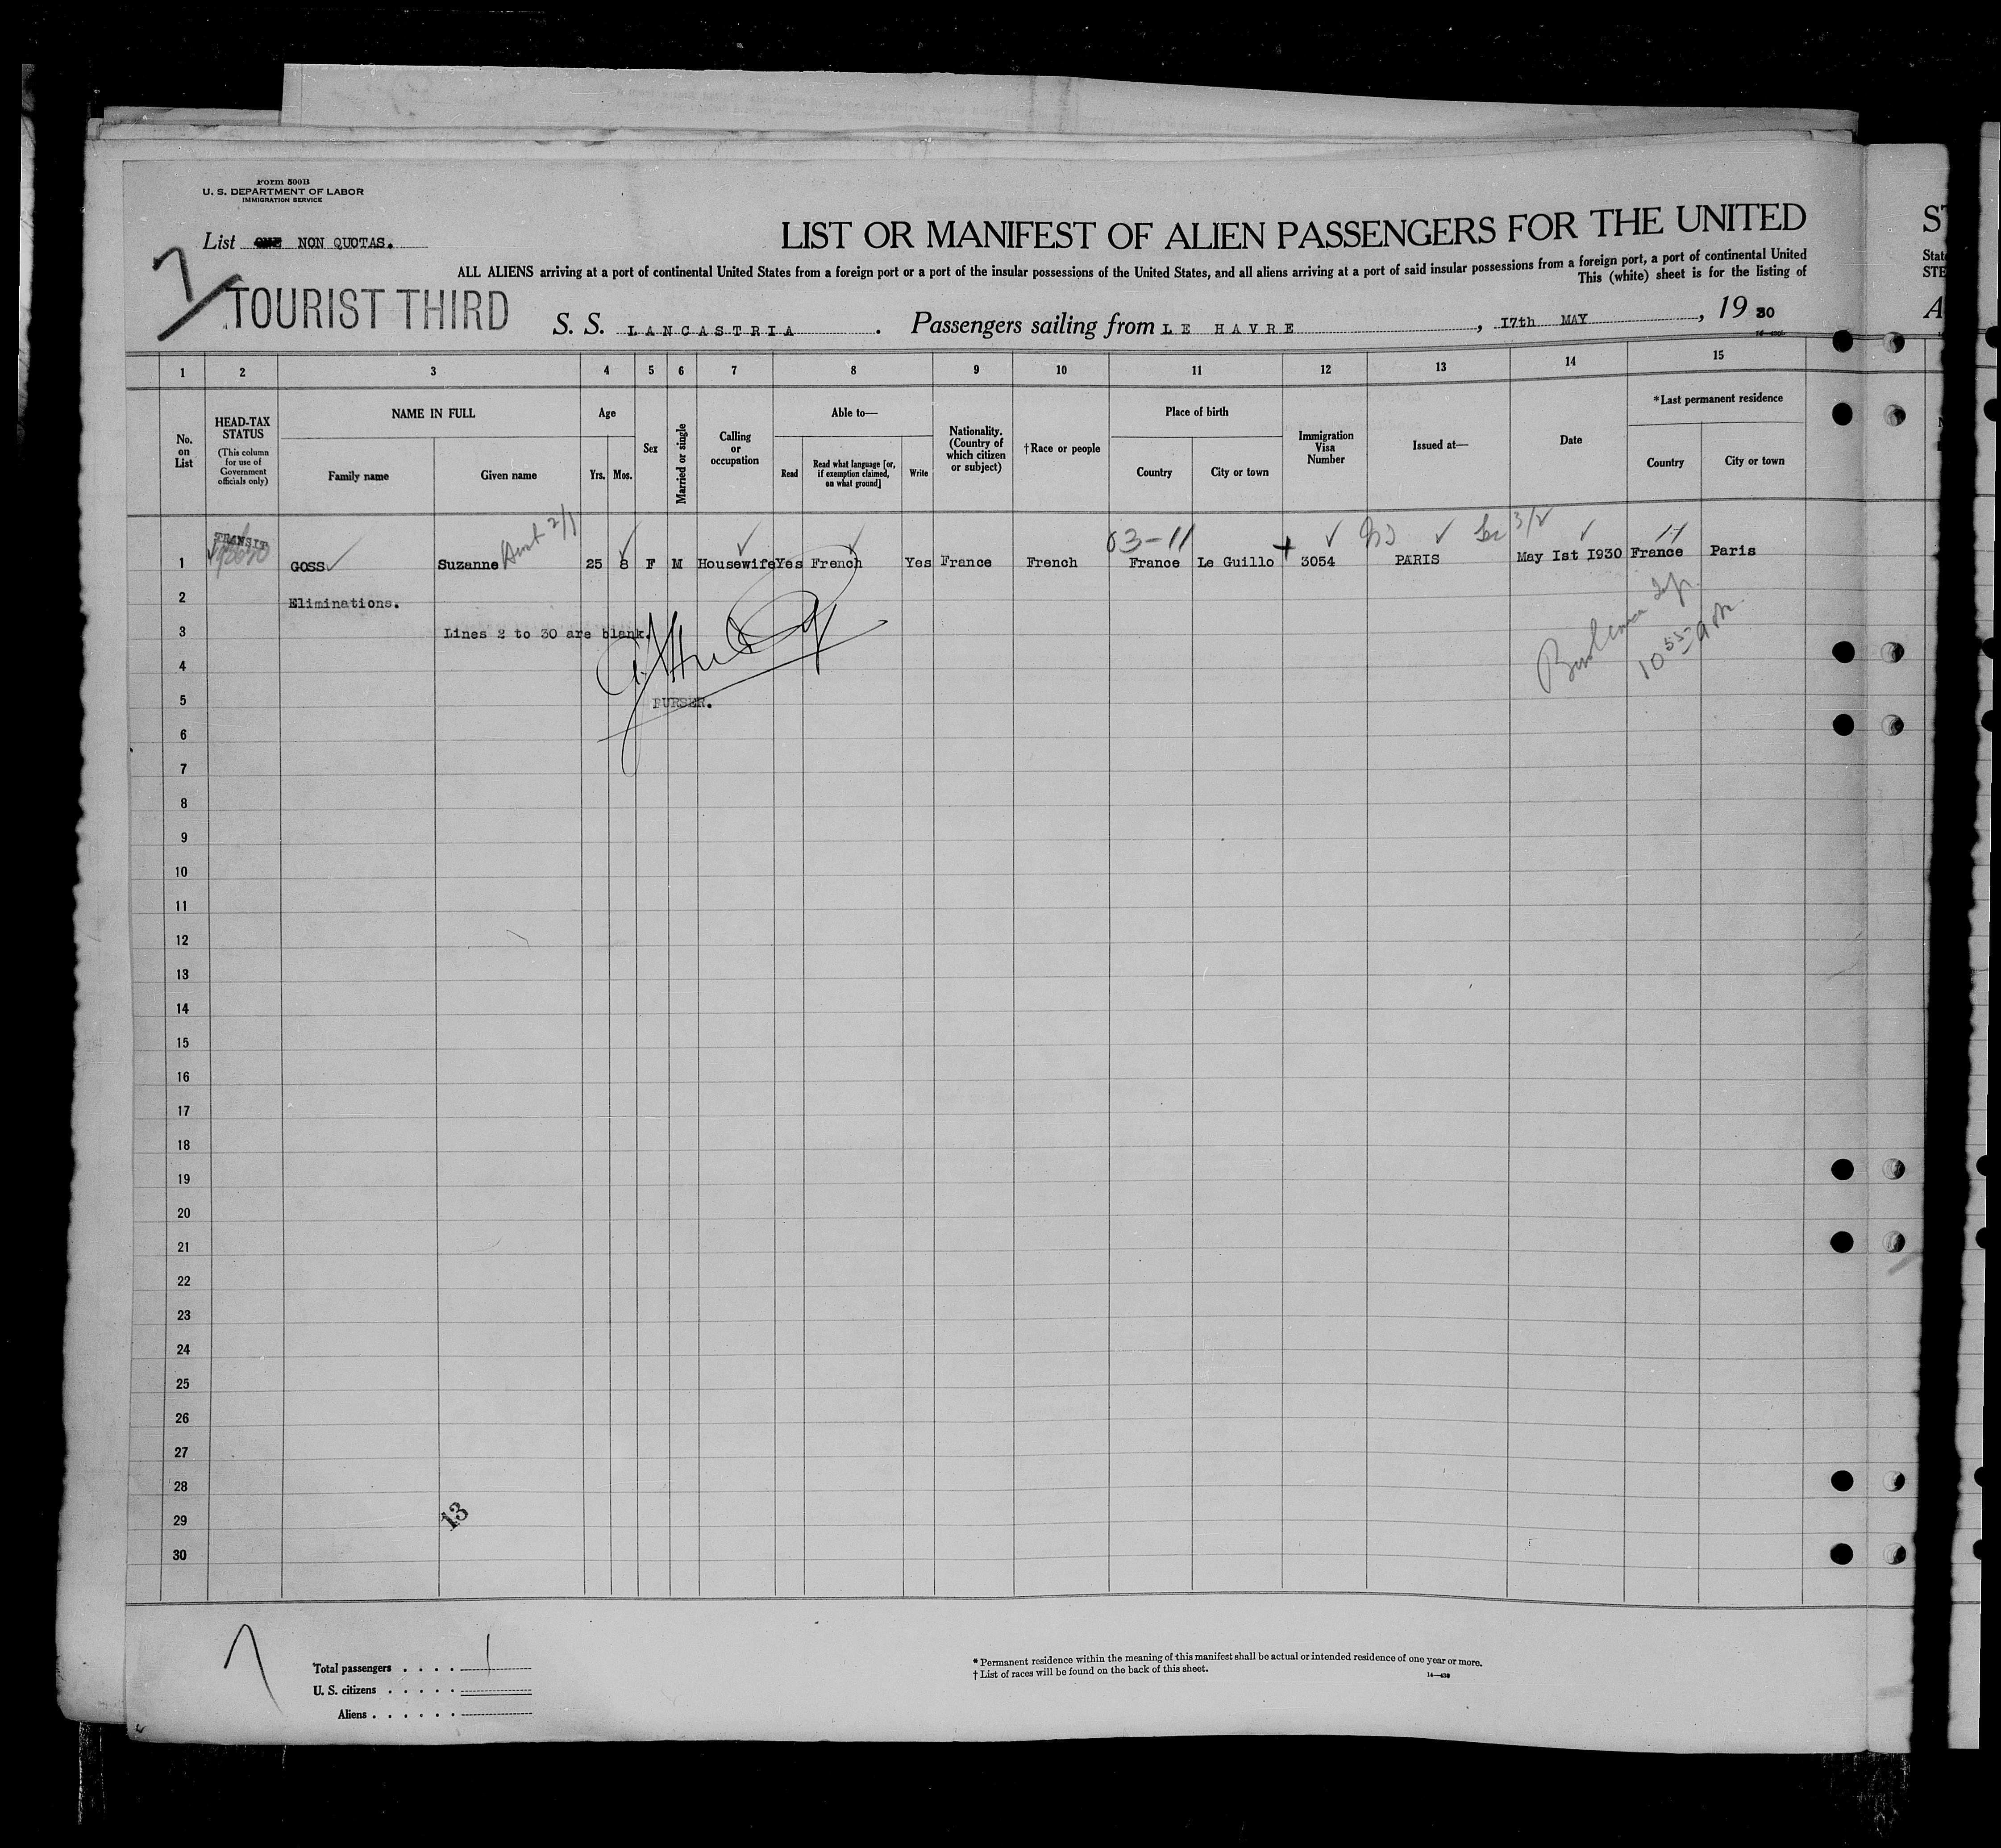 Form 500B
U. S. DEPARTMENT OF LABOR
IMMIGRATION SERVICE
List ONE NON QUOTAS.
LIST OR MANIFEST OF ALIEN PASSENGERS FOR THE UNITED
ST
ALL ALIENS arriving at a port of continental United States from a foreign port or a port of the insular possessions of the United States, and all aliens arriving at a port of said insular possessions from a foreign port, a port of continental United
State
This (white) sheet is for the listing of
STE
7
TOURIST THIRD
S. S. LANCASTRIA . Passengers sailing from LE HAVRE , I7th MAY , 19 30
A
1 2 3 4 5 6 7 8 9 10 11 12 13 14 15
No. on List
HEAD-TAX STATUS (This column for use of Government officials only)
NAME IN FULL
Family name Given name
Age
Yrs. Mos.
Sex
Married or single
Calling or occupation
Able to—
Read
Read what language [or, if exemption claimed, on what ground]
Write
Nationality. (Country of which citizen or subject)
†Race or people
Place of birth
Country City or town
Immigration Visa Number
Issued at—
Date
*Last permanent residence
Country City or town
TRANSIT 2/1 63-11 3/2
1 GOSS Suzanne 25 8 F M Housewife Yes French Yes France French France Le Guillo 3054 PARIS May Ist I930 France Paris
2 Eliminations.
3 Lines 2 to 30 are blank.
10 55 am
4
5 PURSER.
6
7
8
9
10
11
12
13
14
15
16
17
18
19
20
21
22
23
24
25
26
27
28
29 13
30
7
Total passengers . . . . 1
U. S. citizens . . . . .
Aliens . . . . . .
* Permanent residence within the meaning of this manifest shall be actual or intended residence of one year or more.
† List of races will be found on the back of this sheet.
14—430